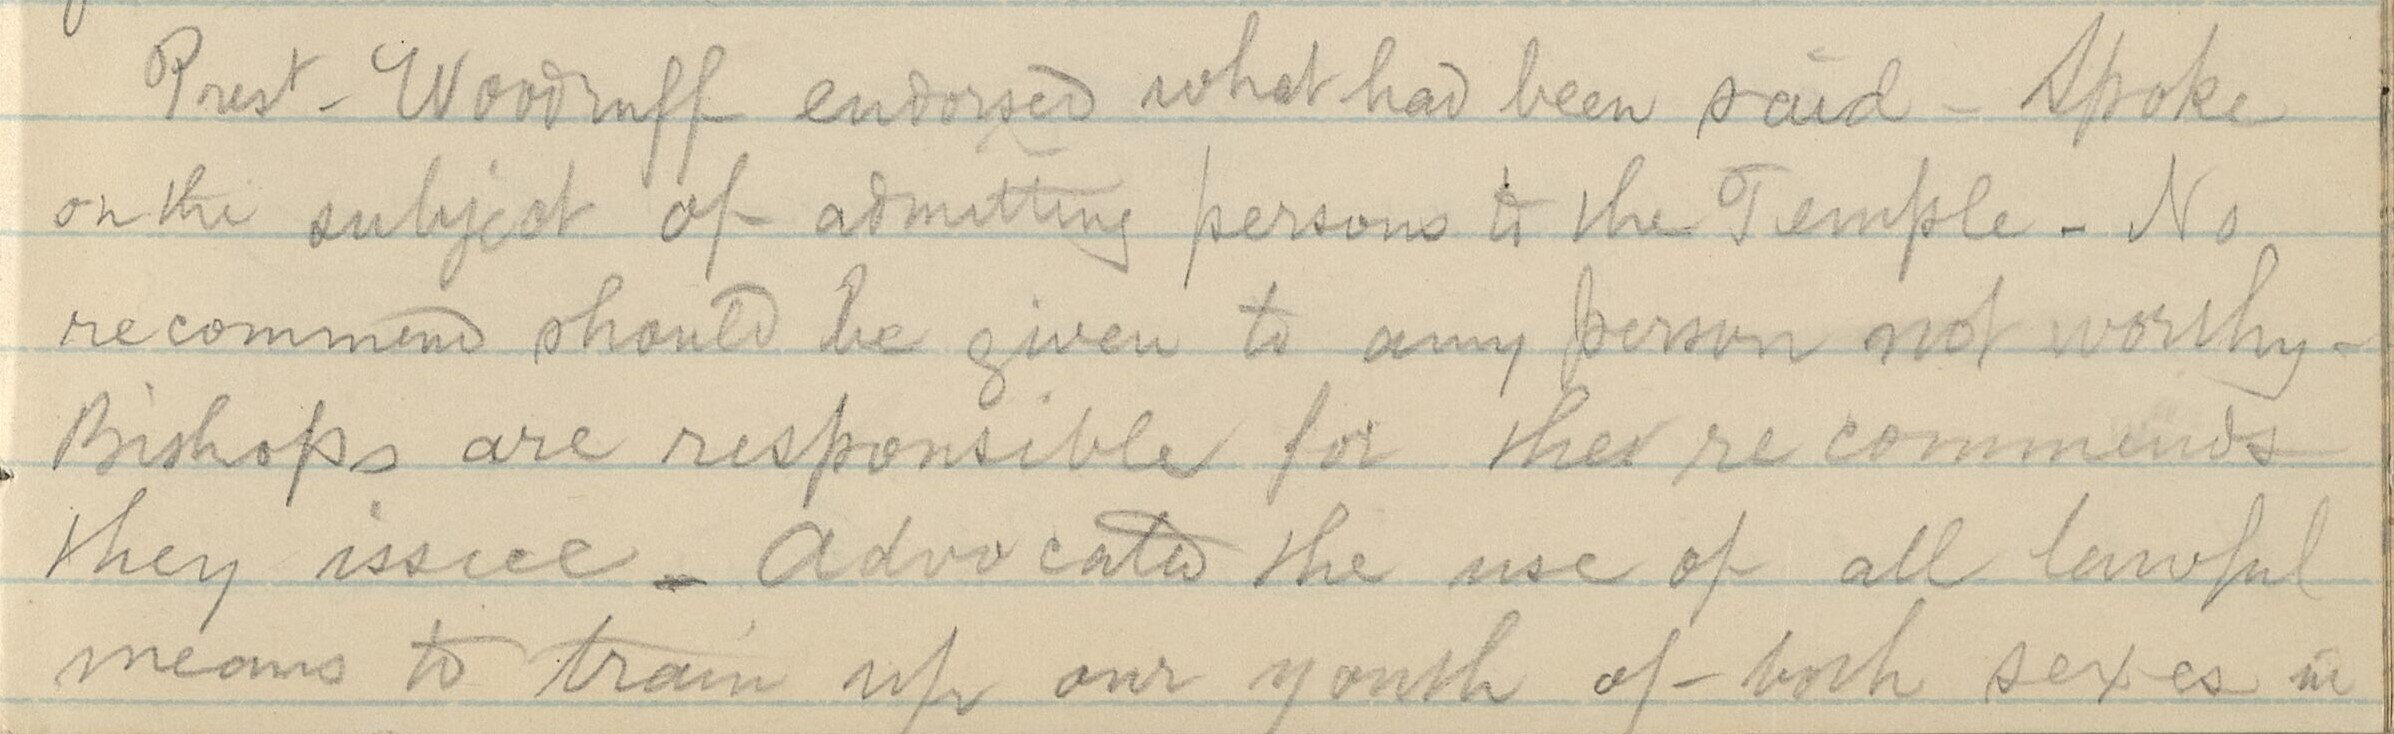 Prest - Woodruff endorsed what had been said - Spoke
on the subject of admitting persons to the Temple - No
recommend should be given to any person not worthy -
Bishops are responsible for their recommends
they issue - Advocated the use of all lawful
means to train up our youth of both sexes in